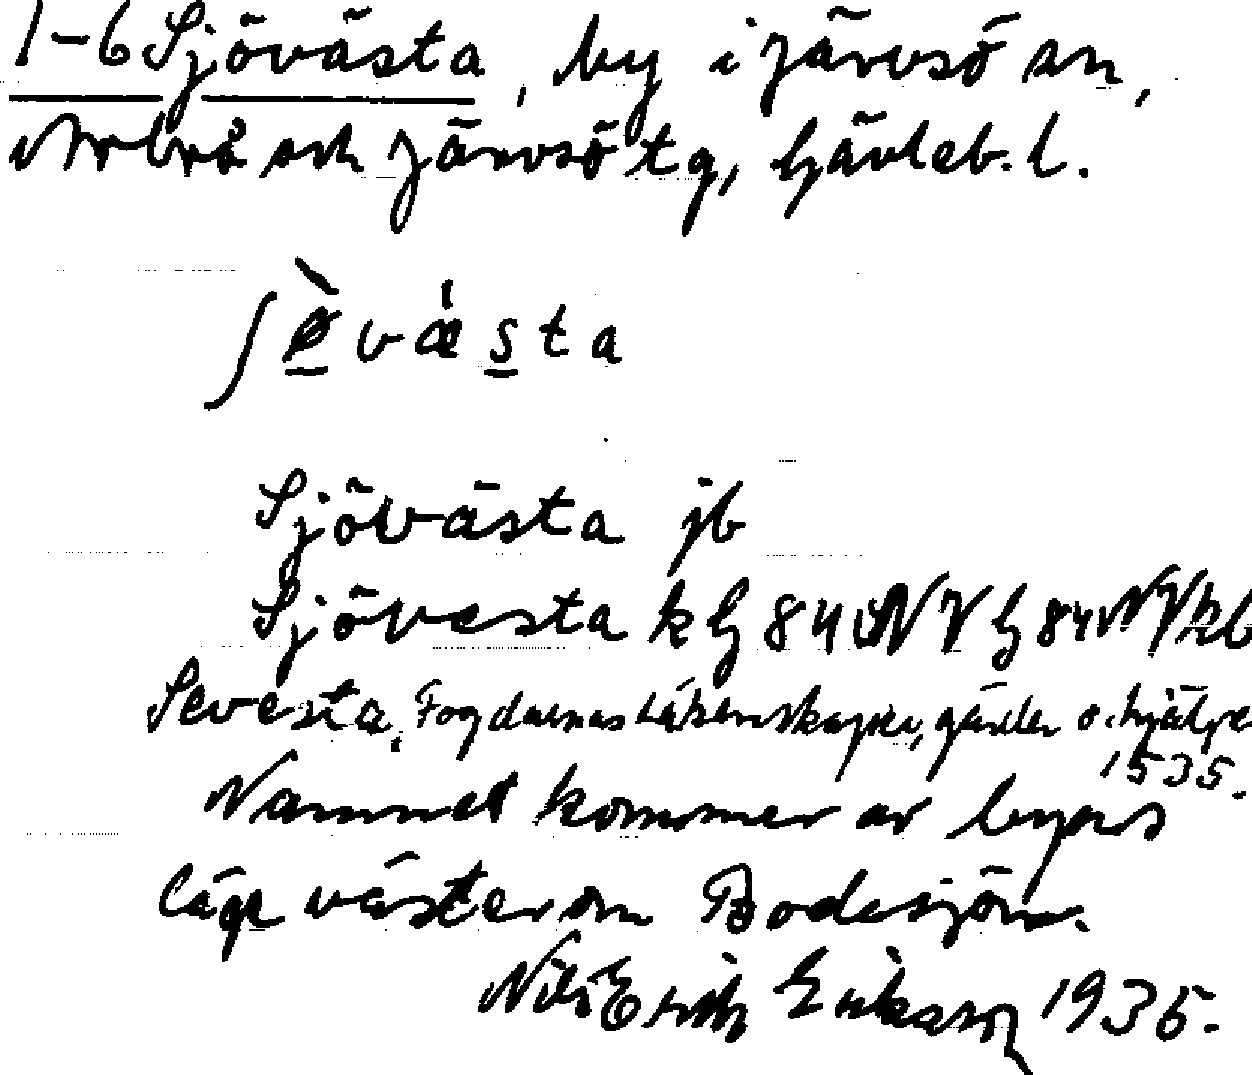 1-6 Sjövästa, by i Järvsö sn,
Arbrå och Järvsö tg, Gävleb. l.
ʃø̠̀væ̍s̠ta
Sjövästa jb
Sjövesta k G 84 NV G 84 NV kb
Sevesta, Fogdarnas räkenskaper, gärder o. hjälper
1535.
Namnet kommer av byns
läge väster om Bodasjön.
Nils Erik Eriksson 1935.